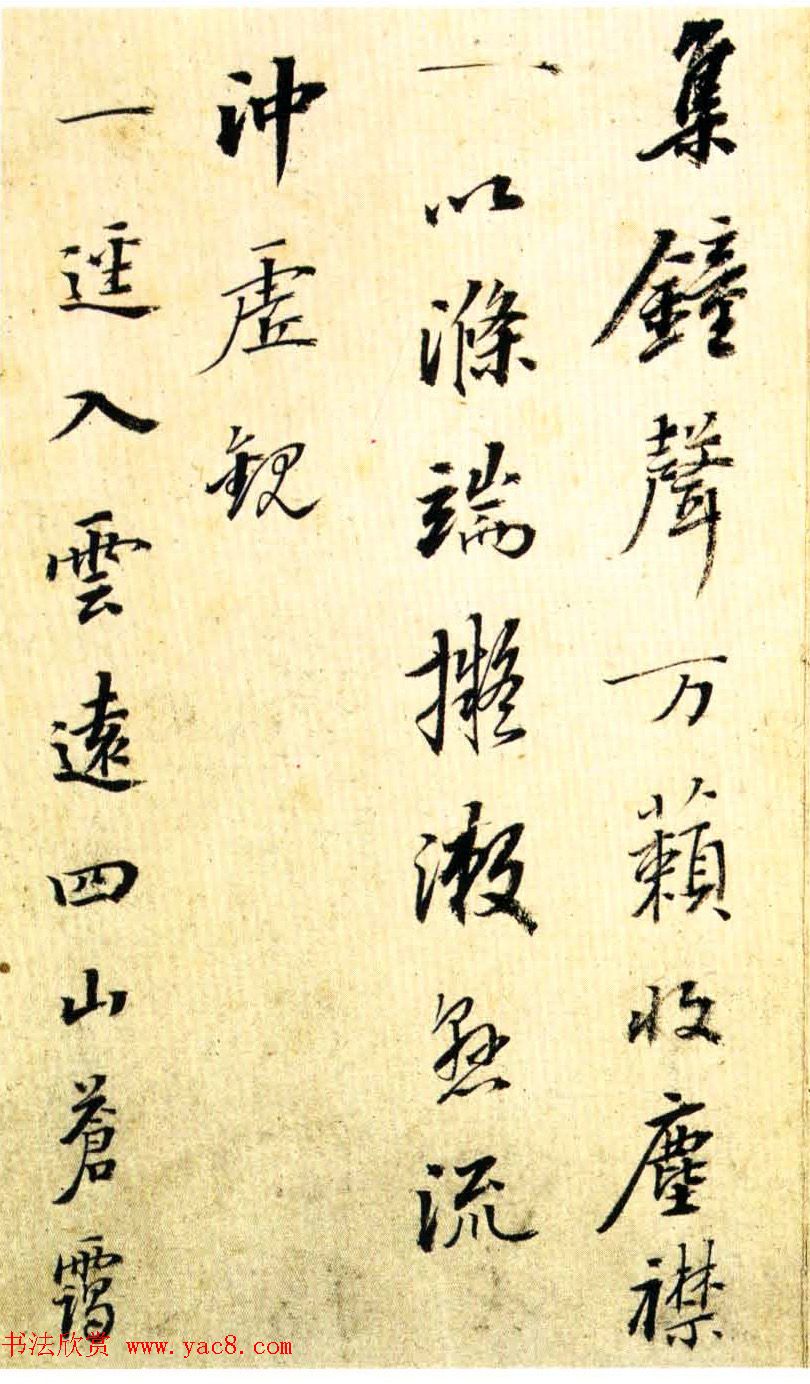 集鐘聲万藾收塵襟
一以滌端擬潄懸流
沖虛觀
一逕入雲遠四山蒼靄
书法欣赏 www.yac8.com